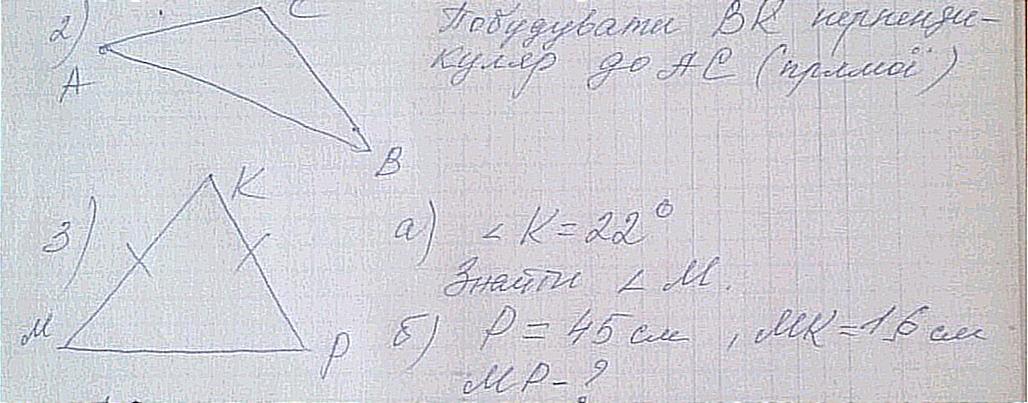 2)
A
C
B
Побудувати BK перпенди-
куляр до AC (прямої)
3)
K
M
P
а) ∠K=22°
Знайти ∠M.
б) P=45см, MK=16см
MP-?